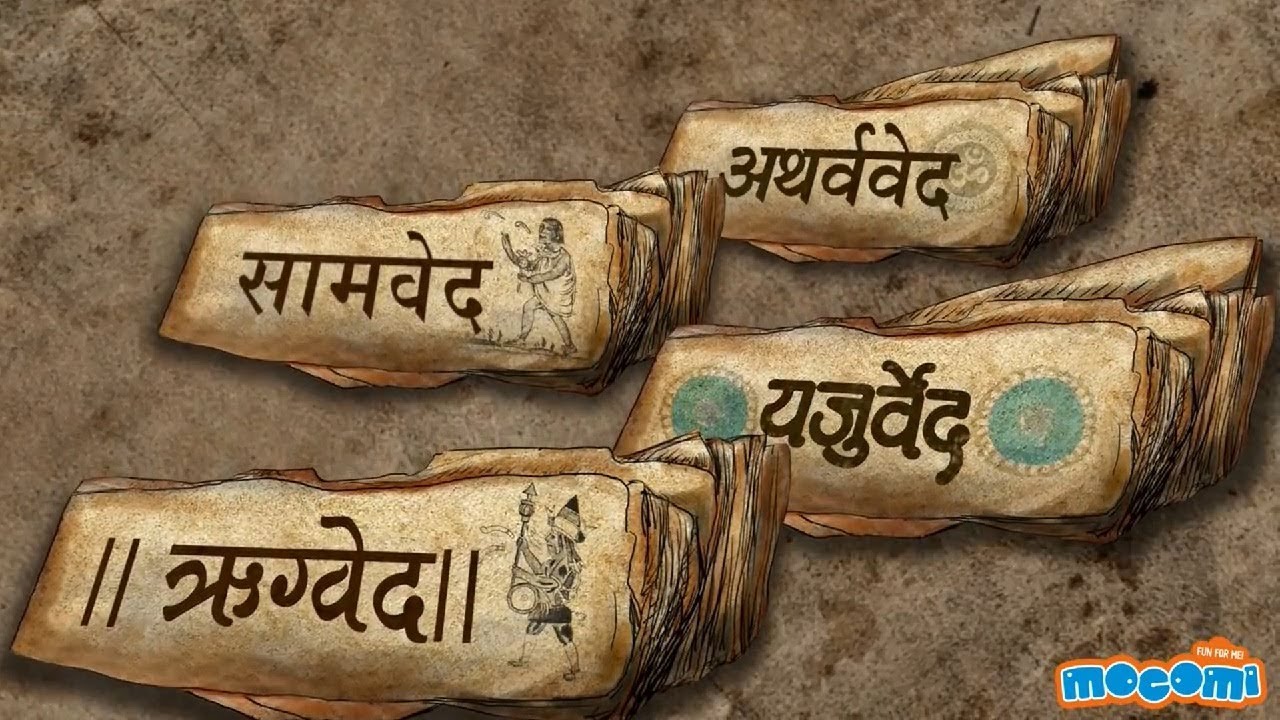 अथर्ववेद
ॐ
सामवेद
यजुर्वेद
|| ऋग्वेद||
FUN FOR ME!
mocomi